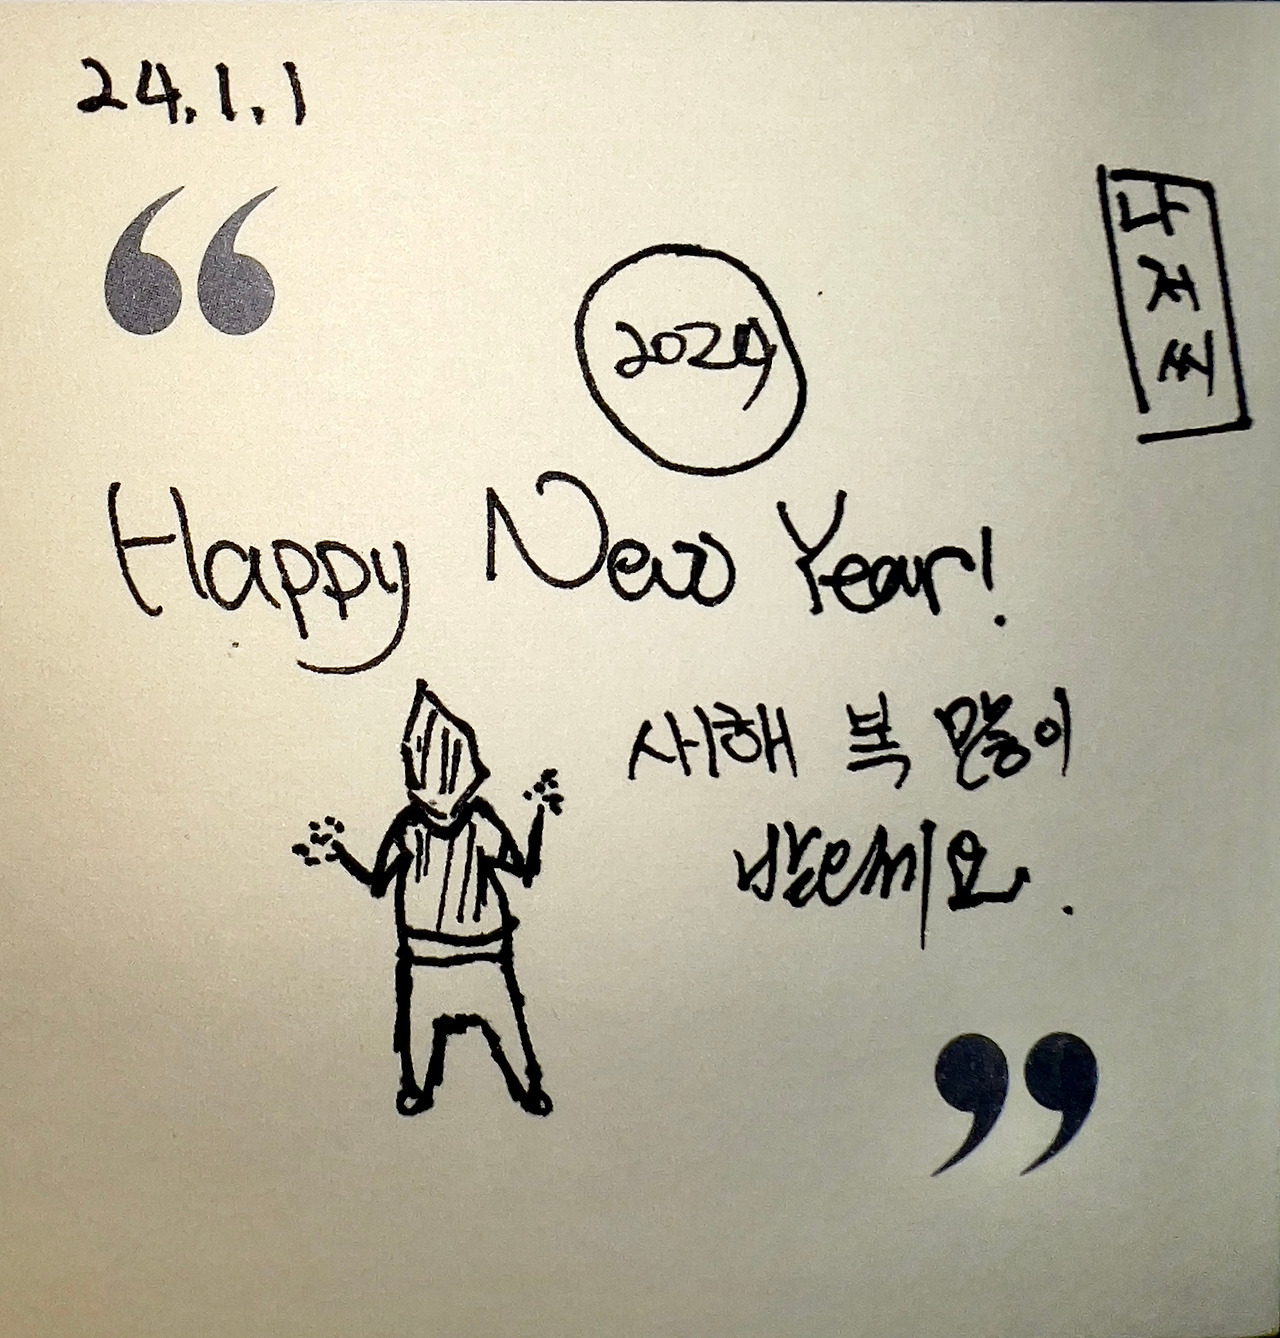 24.1.1
“
나
저
씨
2024
Happy New Year!
새해 복 많이
받으세요.
”